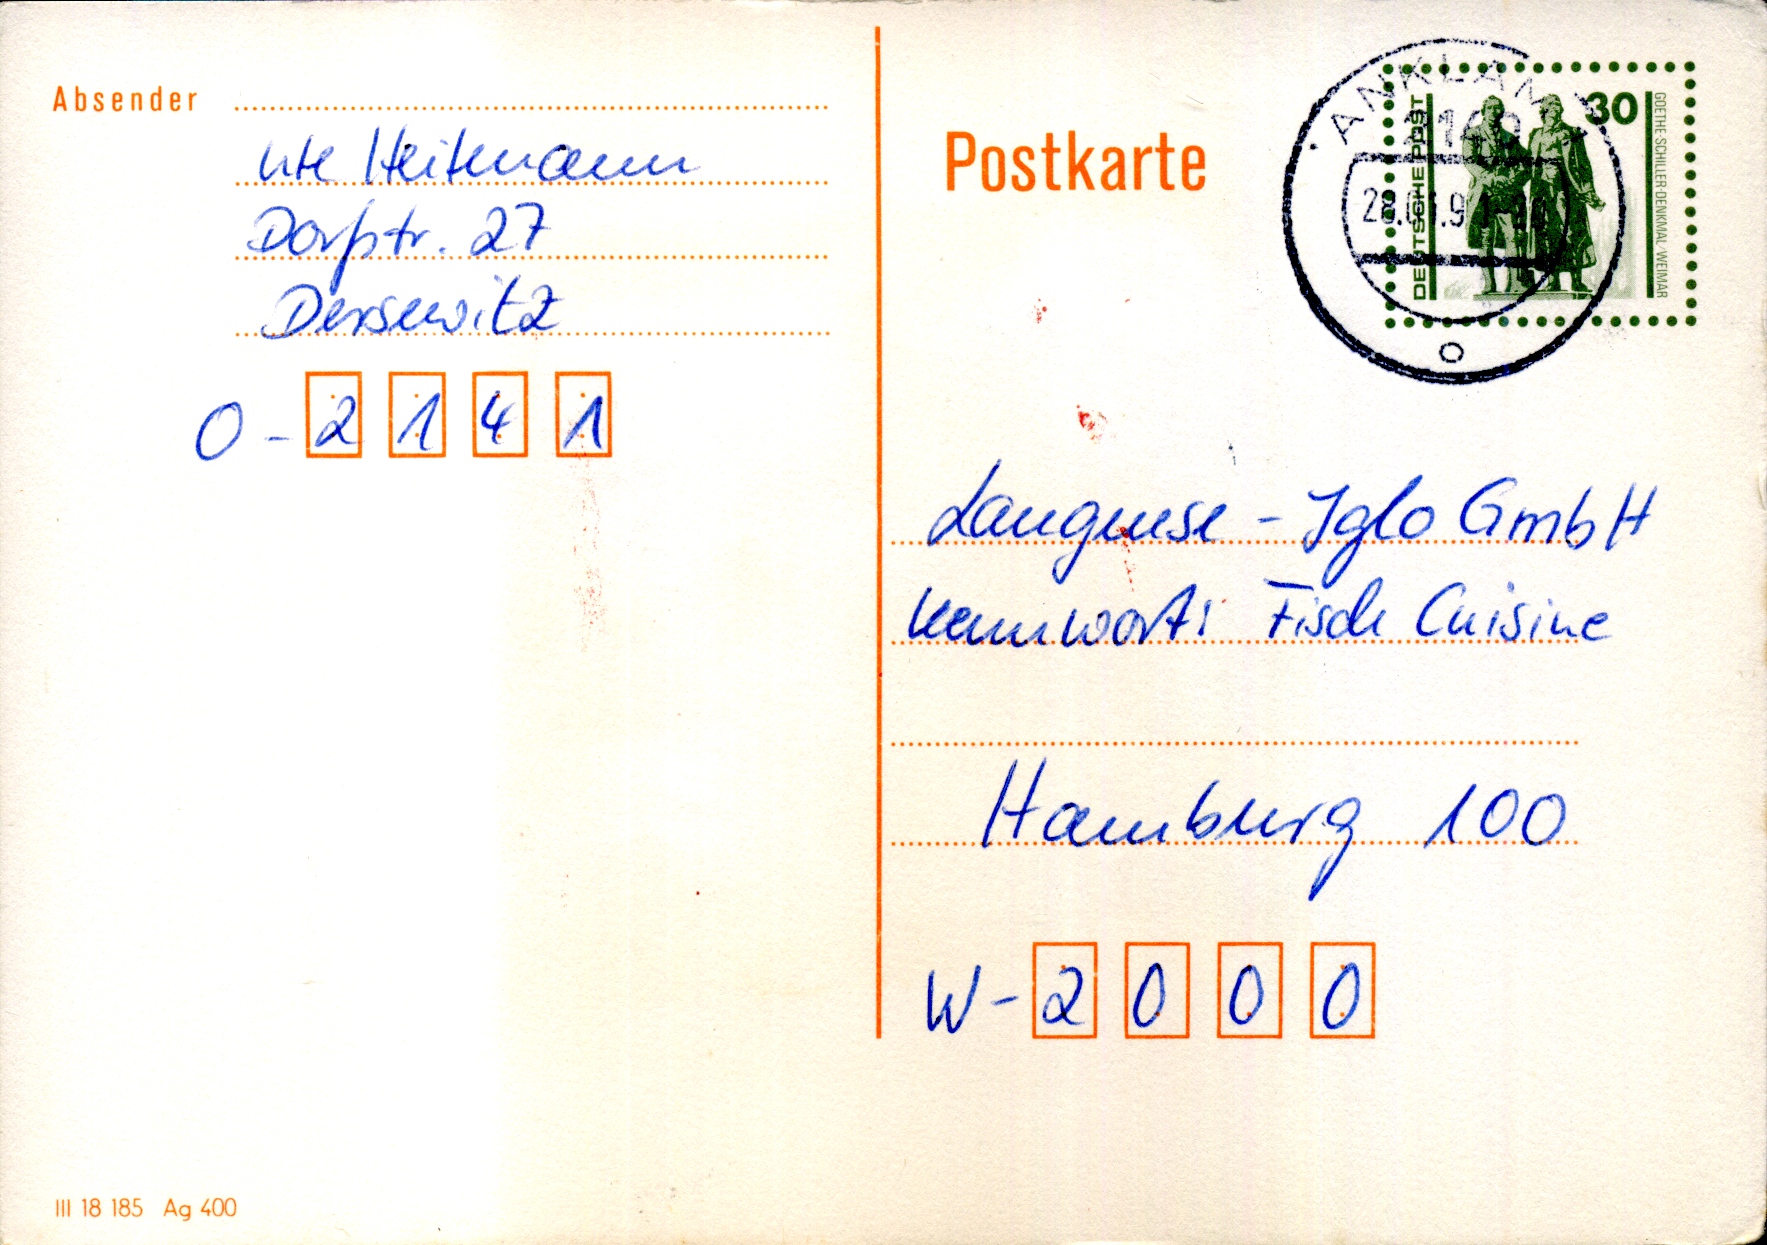 Absender
Ute Heitmann
Dorfstr. 27
Dersewitz
O - 2 1 4 1
III 18 185 Ag 400
Postkarte
ANKLAM 1
2140
DEUTSCHE POST
30
GOETHE-SCHILLER-DENKMAL/WEIMAR
Langnese - Iglo GmbH
Kennwort: Fisch Cuisine
Hamburg 100
W - 2 0 0 0